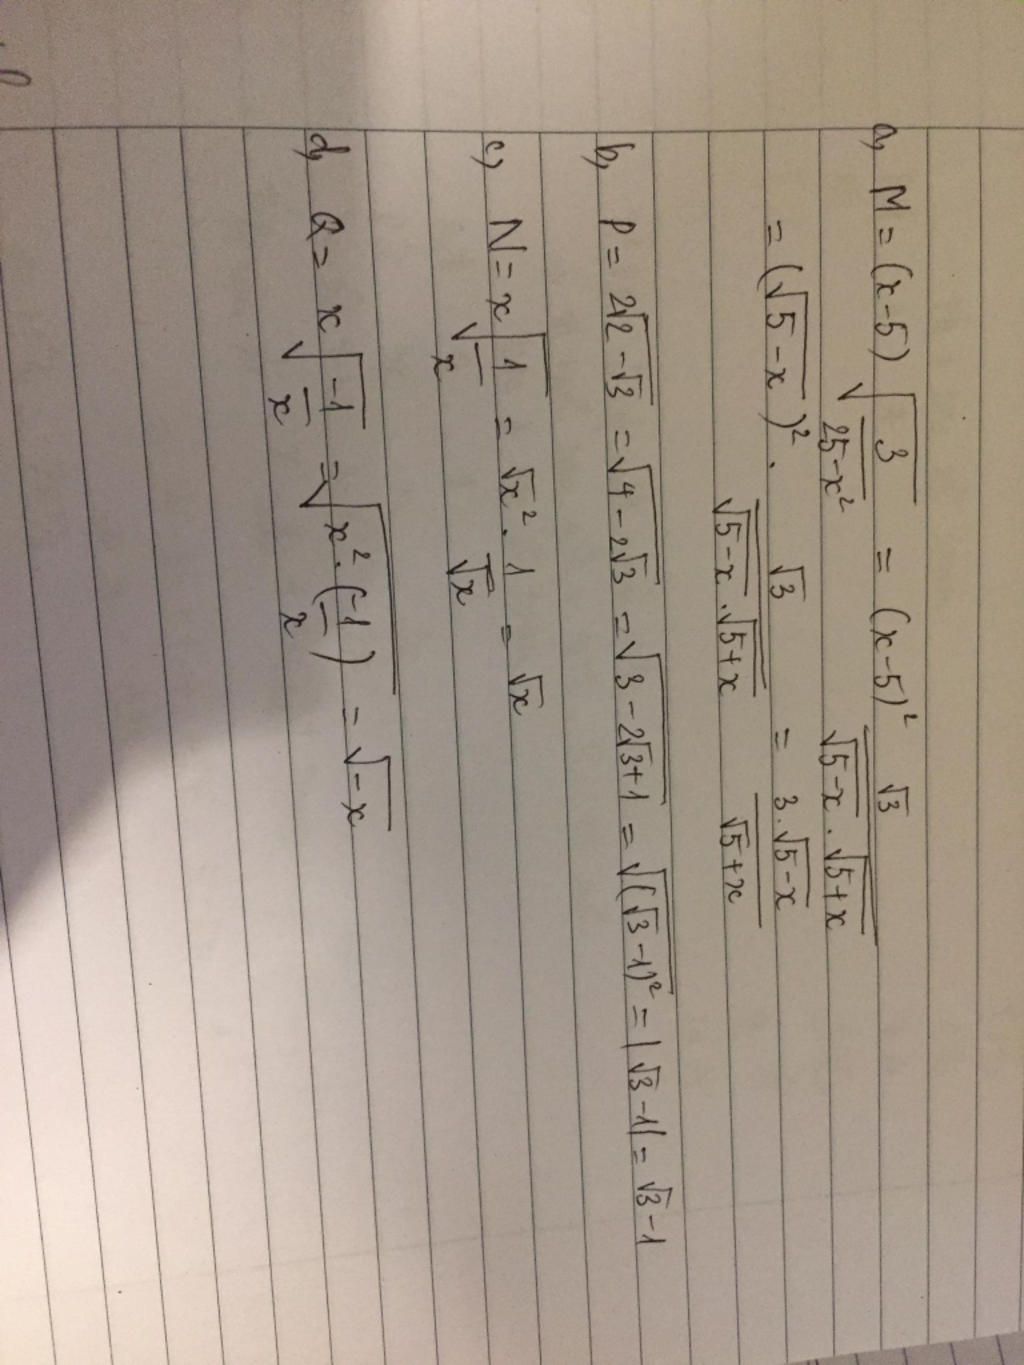 a, M = (x-5) √(3/(25-x²)) = (x-5)² √3/(√(5-x) . √(5+x))
= (√(5-x))² . √3/(√(5-x) . √(5+x)) = 3.√(5-x)/√(5+x)
b, P = 2√(2-√3) = √(4-2√3) = √(3-2√3+1) = √((√3-1)²) = |√3-1| = √3-1
c, N = x√(1/x) = √x² . 1/√x = √x
d, Q = x√(-1/x) = √(x².(-1/x)) = √(-x)